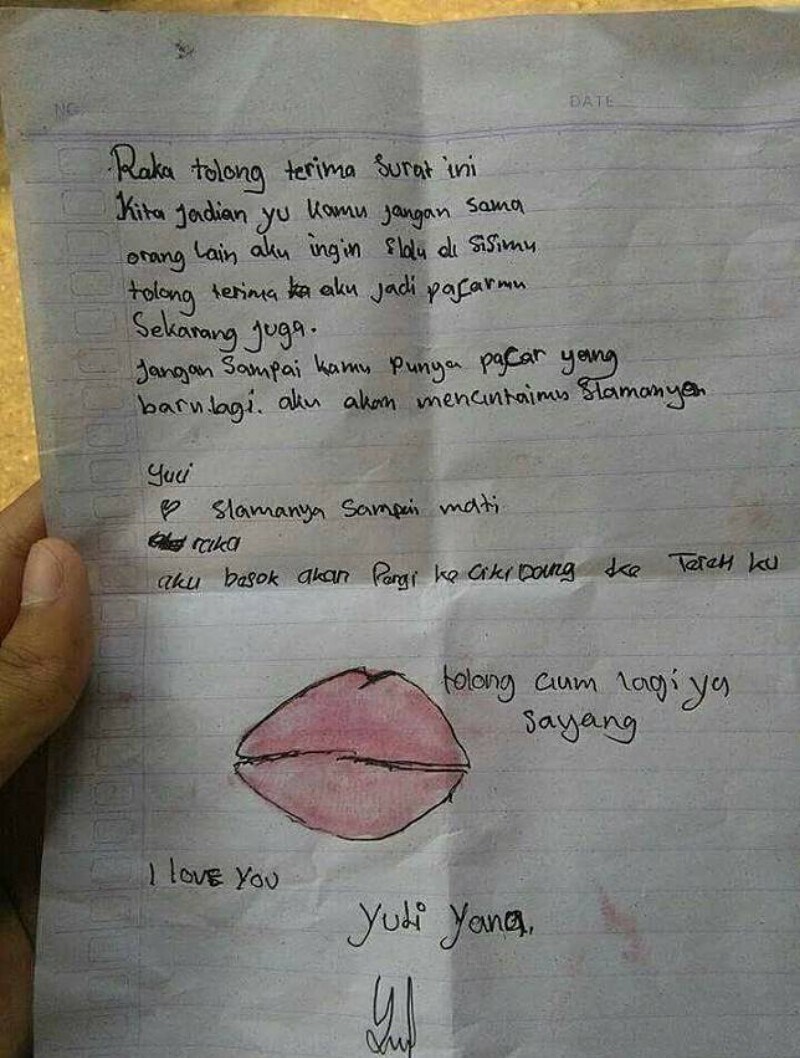 NO.
DATE
Raka tolong terima surat ini
Kita jadian yu kamu jangan sama
orang lain aku ingin slalu di sisimu
tolong terima aku jadi pacarmu
Sekarang juga.
jangan sampai kamu punya pacar yang
baru lagi. aku akan mencintaimu slamanya
Yuci
slamanya sampai mati
raka
aku besok akan pergi ke cikidang ke
tolong cium lagi ya
sayang
I love you
Yuli Yana,